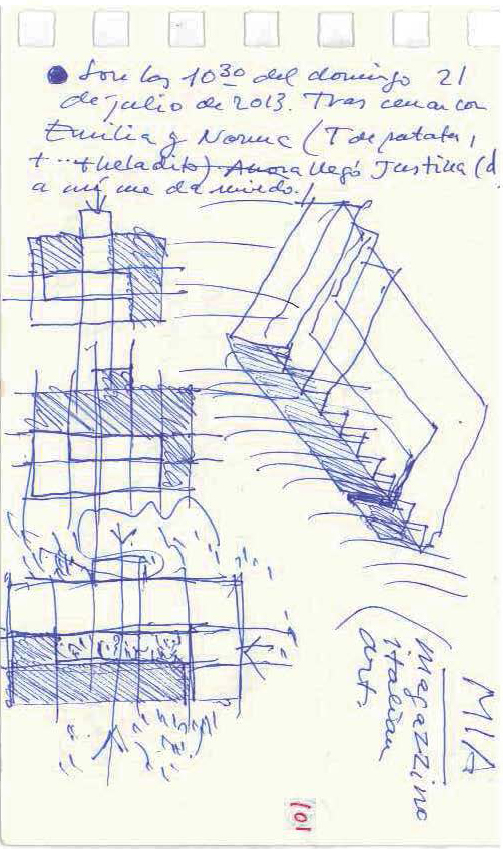 Son las 10³⁰ del domingo 21
de julio de 2013. Tras cenar con
Emilia y Norma (T de patata,
+ ... + heladito) Ahora llegó Justina (d
a mí me da miedo.!
MIA
magazzino
italian
art.
101